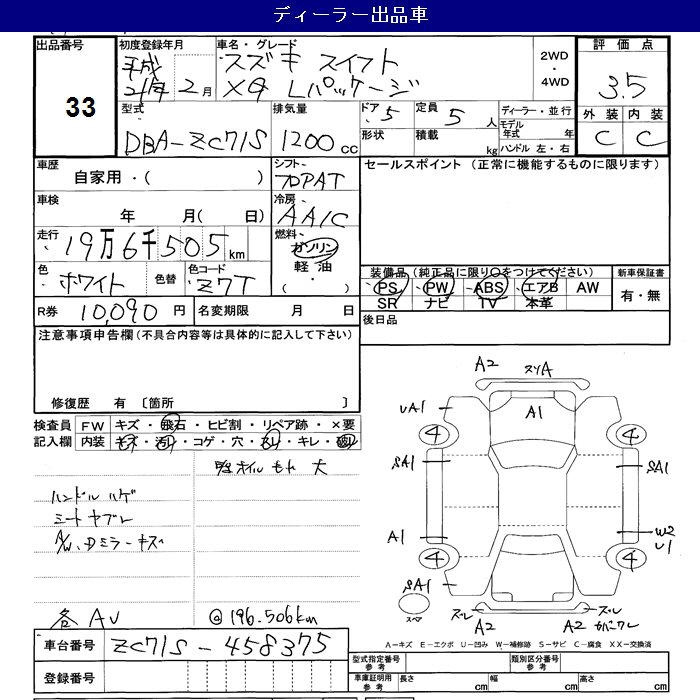 ディーラー出品車
出品番号
33
初度登録年月
平成
21年 2月
車名・グレード
スズキ スイフト
XG Lパッケージ
2WD
・
4WD
評価点
3.5
外装 内装
C C
型式
DBA-ZC71S
排気量
1200 cc
ドア 5
形状
定員 5 人
積載 kg
ディーラー・並行
モデル年式 年
ハンドル 左・右
車歴
自家用・( )
シフト
フロアAT
セールスポイント (正常に機能するものに限ります)
車検
年 月( 日)
冷房
AAC
走行
19万6千505km
燃料
ガソリン
軽油
( ・ )
色
ホワイト
色替
色コード
Z7T
装備品(純正品に限り○をつけてください)
新車保証書
PS PW ABS エアB AW
SR ナビ TV 本革
有・無
R券 10,090 円
名変期限 月 日
後日品
注意事項申告欄(不具合内容等は具体的に記入して下さい)
修復歴 有 〔箇所 〕
検査員
記入欄
FW キズ・飛石・ヒビ割・リペア跡・×要
内装 キズ・汚レ・コゲ・穴・スレ・キレ・
オイルもれ 大
ハンドル ハゲ
シート ヤブレ
A/W、Dミラー キズ
各 AU
@196.506km
A2 スリA
UA1
A1
4 4
SA1 SA1
A1 W2
U1
4 4
SA1
スペア
スレ スレ
A2 A2 カバーワレ
A-キズ E-エクボ U-凹み W-補修跡 S-サビ C-腐食 XX-交換済
車台番号 ZC71S-458375
登録番号
型式指定番号
参考
類別区分番号
参考
車庫証明用
参考
長さ cm 幅 cm 高さ cm